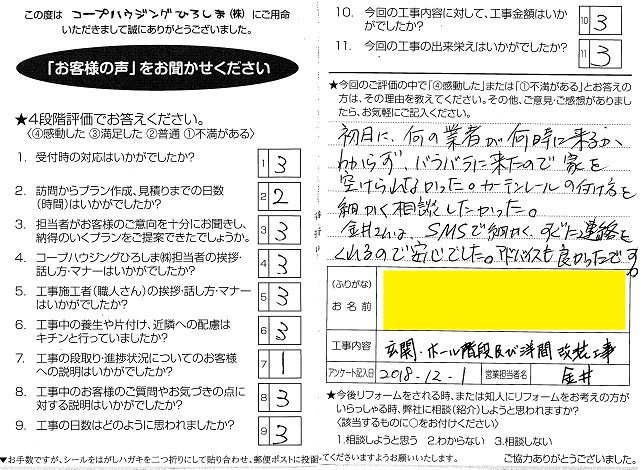 この度は コープハウジングひろしま(株) にご用命
いただきまして誠にありがとうございました。
「お客様の声」をお聞かせください
★4段階評価でお答えください。
〈④感動した ③満足した ②普通 ①不満がある〉
1. 受付時の対応はいかがでしたか?
1 3
2. 訪問からプラン作成、見積りまでの日数
(時間)はいかがでしたか?
2 2
3. 担当者がお客様のご意向を十分にお聞きし、
納得のいくプランをご提案できたでしょうか。
3 3
4. コープハウジングひろしま㈱担当者の挨拶・
話し方・マナーはいかがでしたか?
4 3
5. 工事施工者(職人さん)の挨拶・話し方・マナー
はいかがでしたか?
5 3
6. 工事中の養生や片付け、近隣への配慮は
キチンと行っていましたか?
6 3
7. 工事の段取り・進捗状況についてのお客様
への説明はいかがでしたか?
7 1
8. 工事中のお客様のご質問やお気づきの点に
対する説明はいかがでしたか?
8 3
9. 工事の日数はどのように思われましたか?
9 3
10. 今回の工事内容に対して、工事金額はいか
がでしたか?
10 3
11. 今回の工事の出来栄えはいかがでしたか?
11 3
★今回のご評価の中で「④感動した」または「①不満がある」とお答え
の方は、その理由を教えてください。その他、ご意見・ご感想がありまし
たら、お気軽にご記入ください。
初日に、何の業者が何時に来るか、
わからず、バラバラに来たので家を
空けられなかった。カーテンレールの付け方を
細かく相談したかった。
金井さんは、SMSで細かく、すぐに連絡を
くれるので安心でした。アドバイスも良かったです
(ふりがな)
お名前
工事内容
玄関・ホール階段及び洋間 改装工事
アンケート記入日
2018-12-1
営業担当者名
金井
★今後リフォームをされる時、または知人にリフォームをお考えの方が
いらっしゃる時、弊社に相談(紹介)しようと思われますか?
〈該当するものに○をお付けください〉
1.相談しようと思う 2.わからない 3.相談しない
▼お手数ですが、シールをはがしハガキを二つ折りにして貼り合わせ、郵便ポストに投函してくださいますようお願いいたします。
ご協力ありがとうございました。